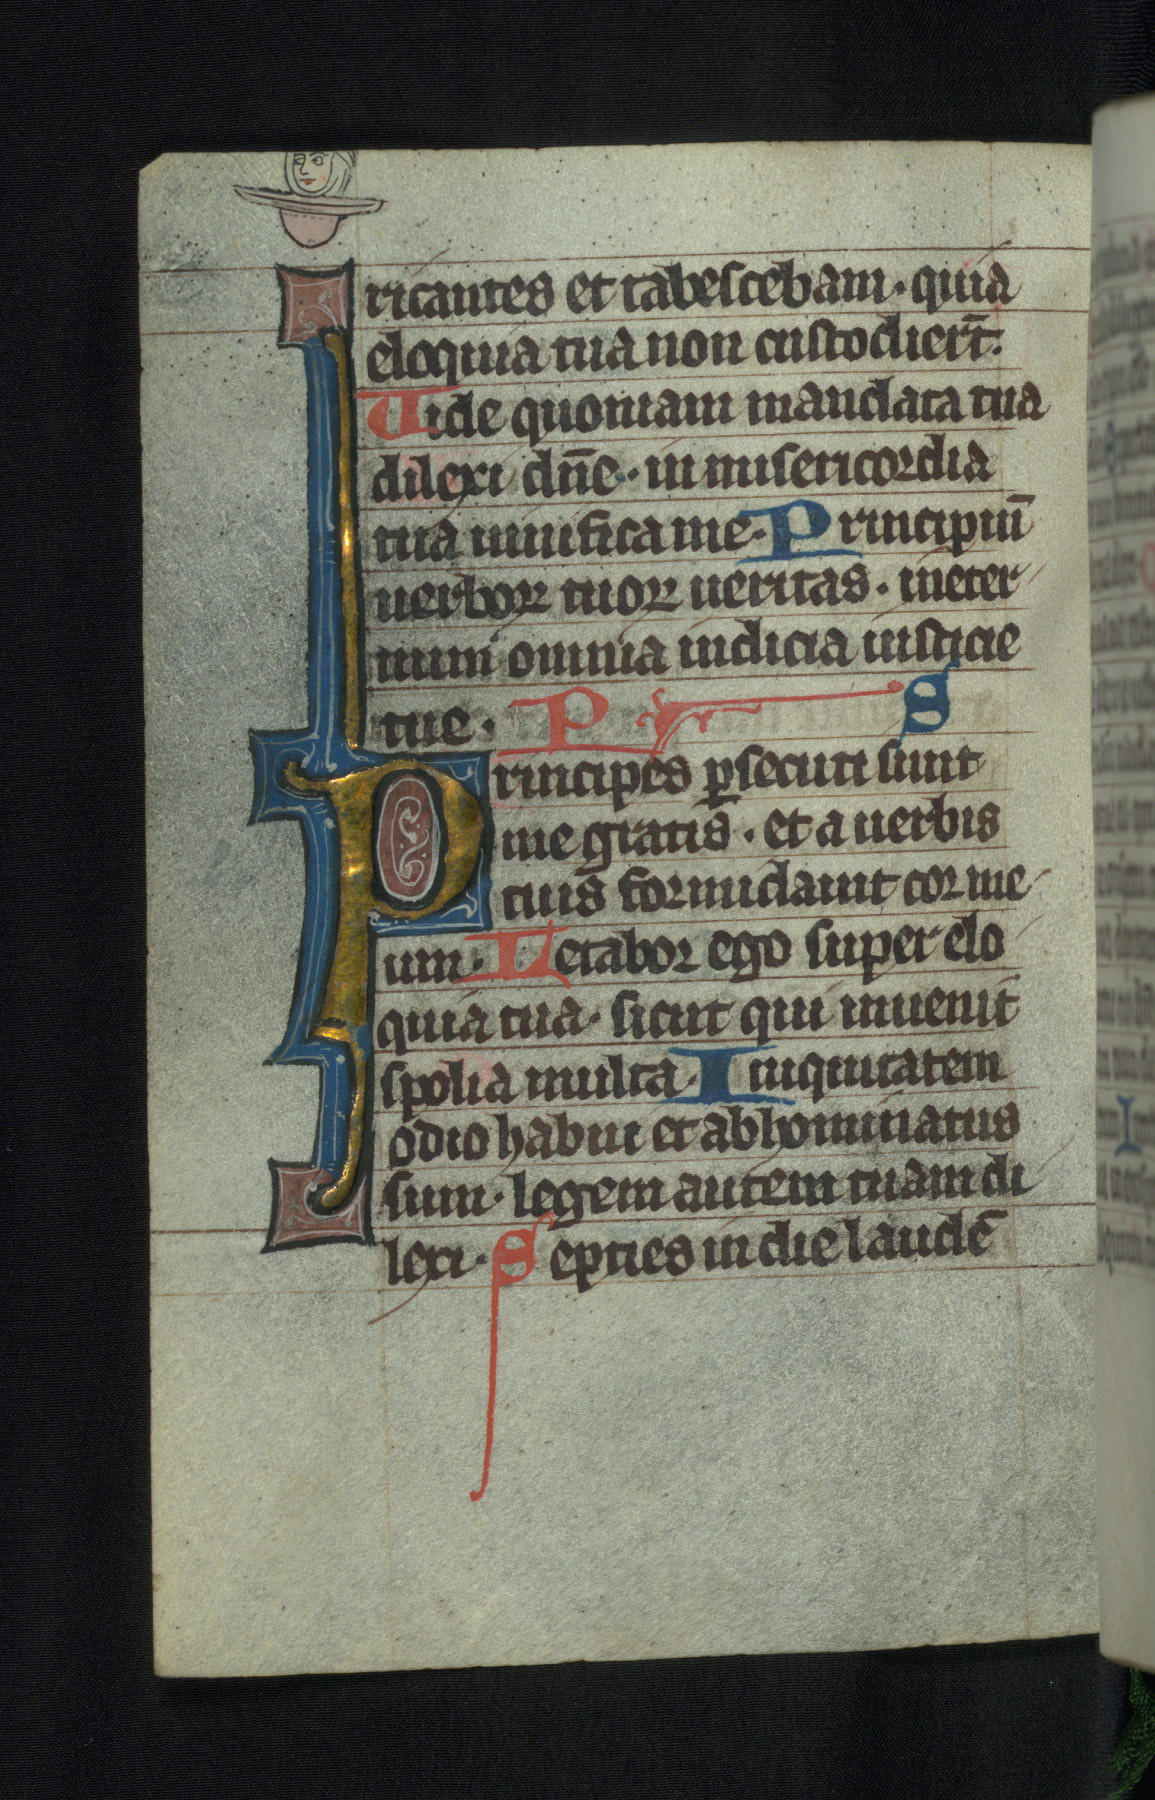 ricantes et tabescebam · quia
eloquia tua non custodier̄t.
Uide quoniam mandata tua
dilexi dn̄e · in misericordia
tua uiuifica me · Principiū
uerboꝝ tuoꝝ ueritas · in eter
num omnia iudicia iusticie
tue · P S
Principes ꝑsecuti sunt
me gratis · et a uerbis
tuis formidauit cor me
um · Letabor ego super elo
quia tua · sicut qui inuenit
spolia multa · Iniquitatem
odio habui et abhominatus
sum · legem autem tuam di
lexi · Septies in die laudē